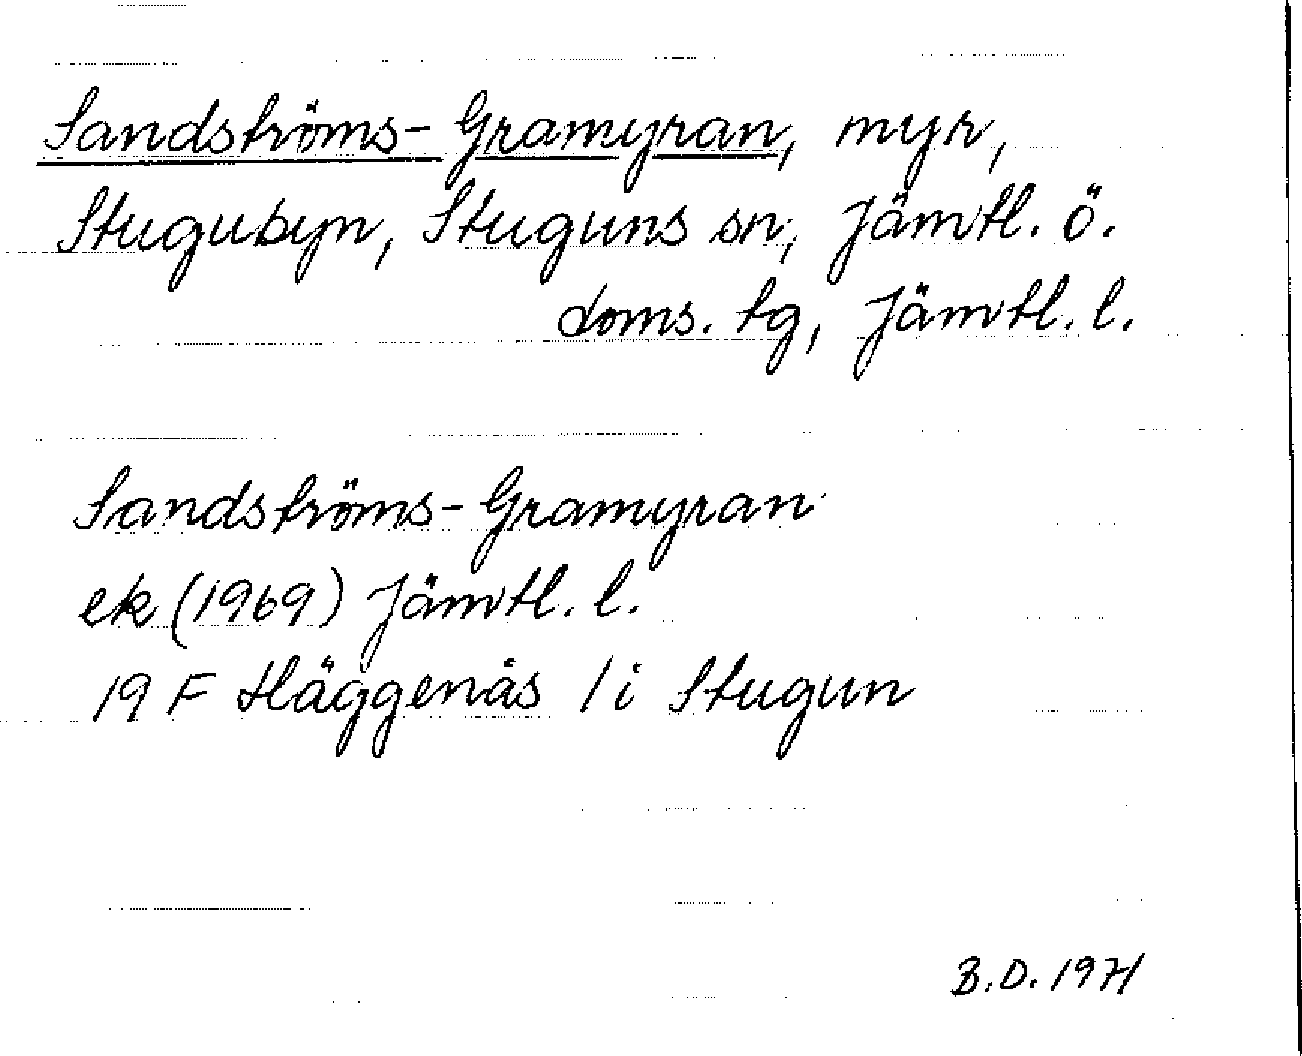 Sandströms-Gramyran, myr,
Stugubyn, Stuguns sn, Jämtl. ö.
doms. tg, Jämtl. l.
Sandströms-Gramyran
ek (1969) Jämtl. l.
19 F Häggenås / i Stugun
B.D. 1971